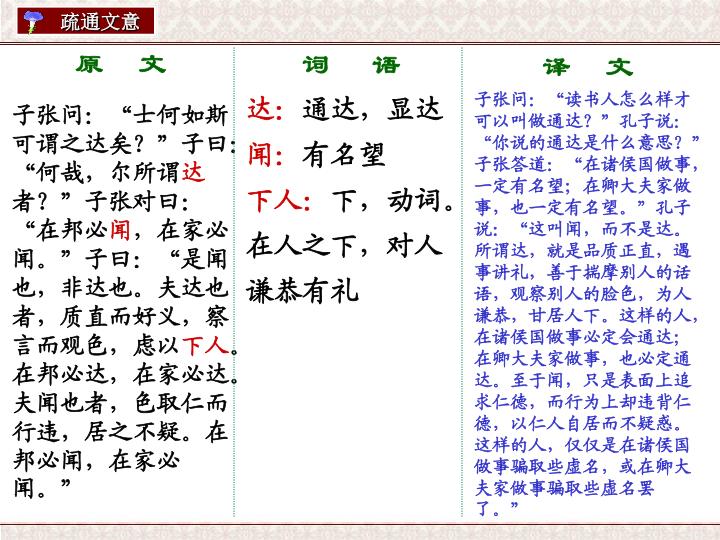 疏通文意
原 文
子张问：“士何如斯
可谓之达矣？”子曰：
“何哉，尔所谓达
者？”子张对曰：
“在邦必闻，在家必
闻。”子曰：“是闻
也，非达也。夫达也
者，质直而好义，察
言而观色，虑以下人。
在邦必达，在家必达。
夫闻也者，色取仁而
行违，居之不疑。在
邦必闻，在家必
闻。”
词 语
达：通达，显达
闻：有名望
下人：下，动词。
在人之下，对人
谦恭有礼
译 文
子张问：“读书人怎么样才
可以叫做通达？”孔子说：
“你说的通达是什么意思？”
子张答道：“在诸侯国做事，
一定有名望；在卿大夫家做
事，也一定有名望。”孔子
说：“这叫闻，而不是达。
所谓达，就是品质正直，遇
事讲礼，善于揣摩别人的话
语，观察别人的脸色，为人
谦恭，甘居人下。这样的人，
在诸侯国做事必定会通达；
在卿大夫家做事，也必定通
达。至于闻，只是表面上追
求仁德，而行为上却违背仁
德，以仁人自居而不疑惑。
这样的人，仅仅是在诸侯国
做事骗取些虚名，或在卿大
夫家做事骗取些虚名罢
了。”